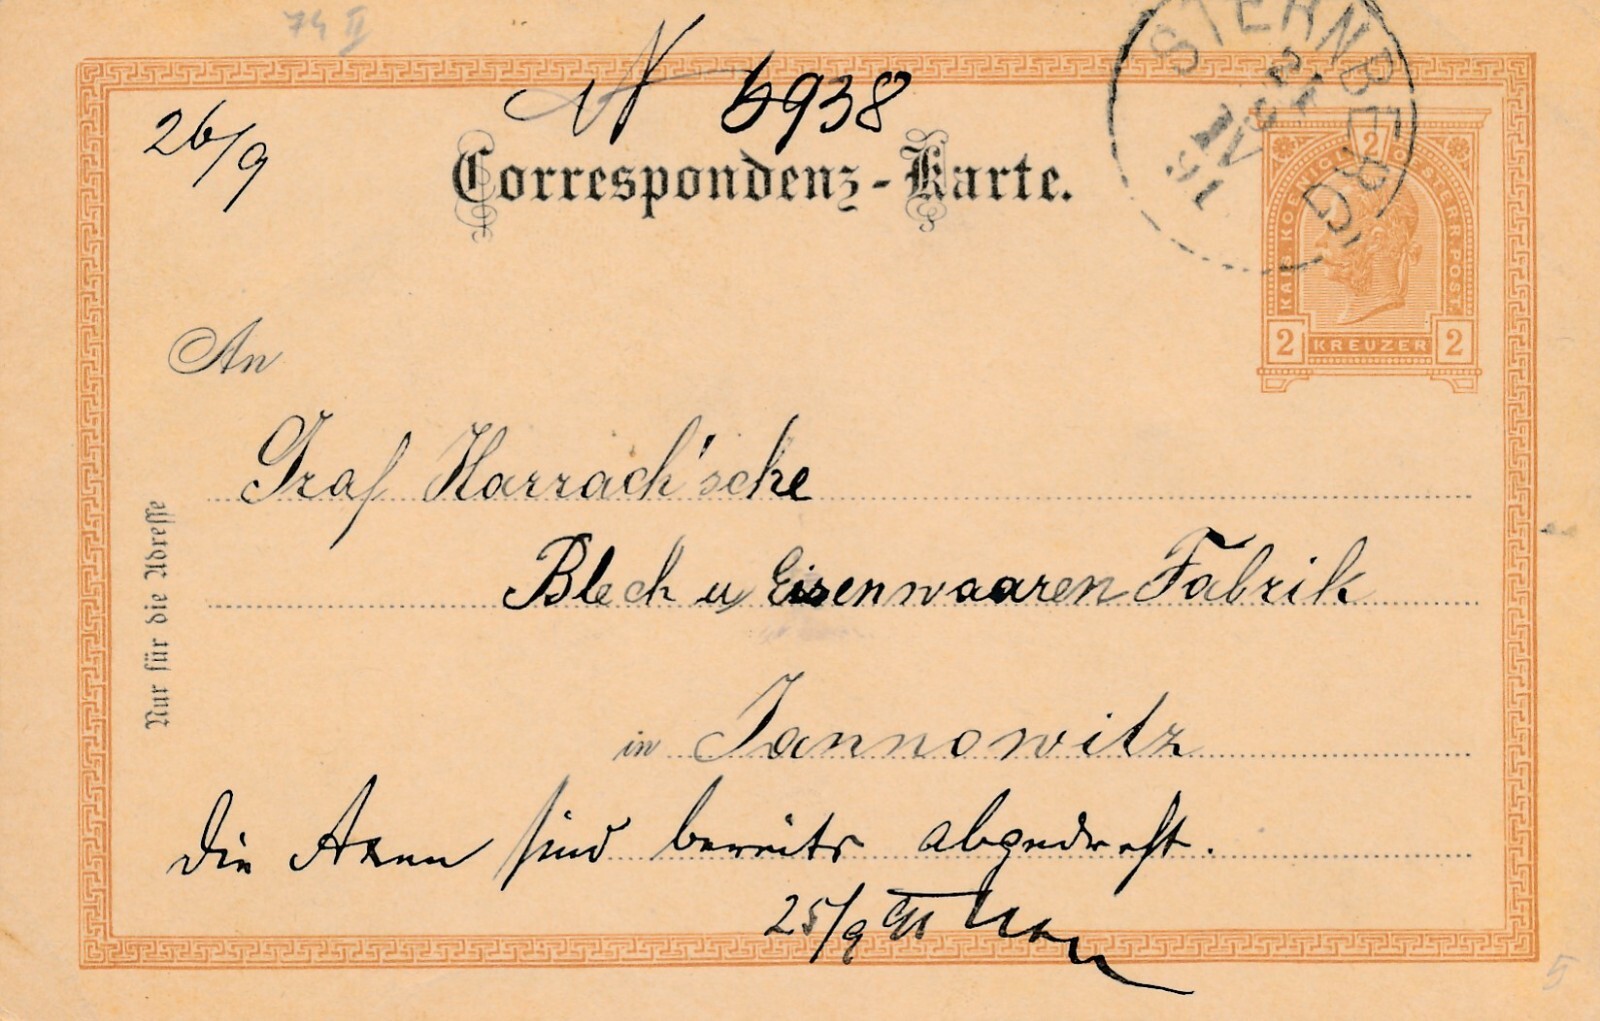 74 II
STERNBERG
24
9
91
IV
26/9
N 5938
Correspondenz-Karte.
KAIS. KOENIGL. OESTERR. POST.
2
2 KREUZER 2
An
Graf Harrach'sche
Blech u Eisenwaaren Fabrik
in Jannowitz
Nur für die Adresse
Die Axen sind bereits abgedreht.
25/9 91
5